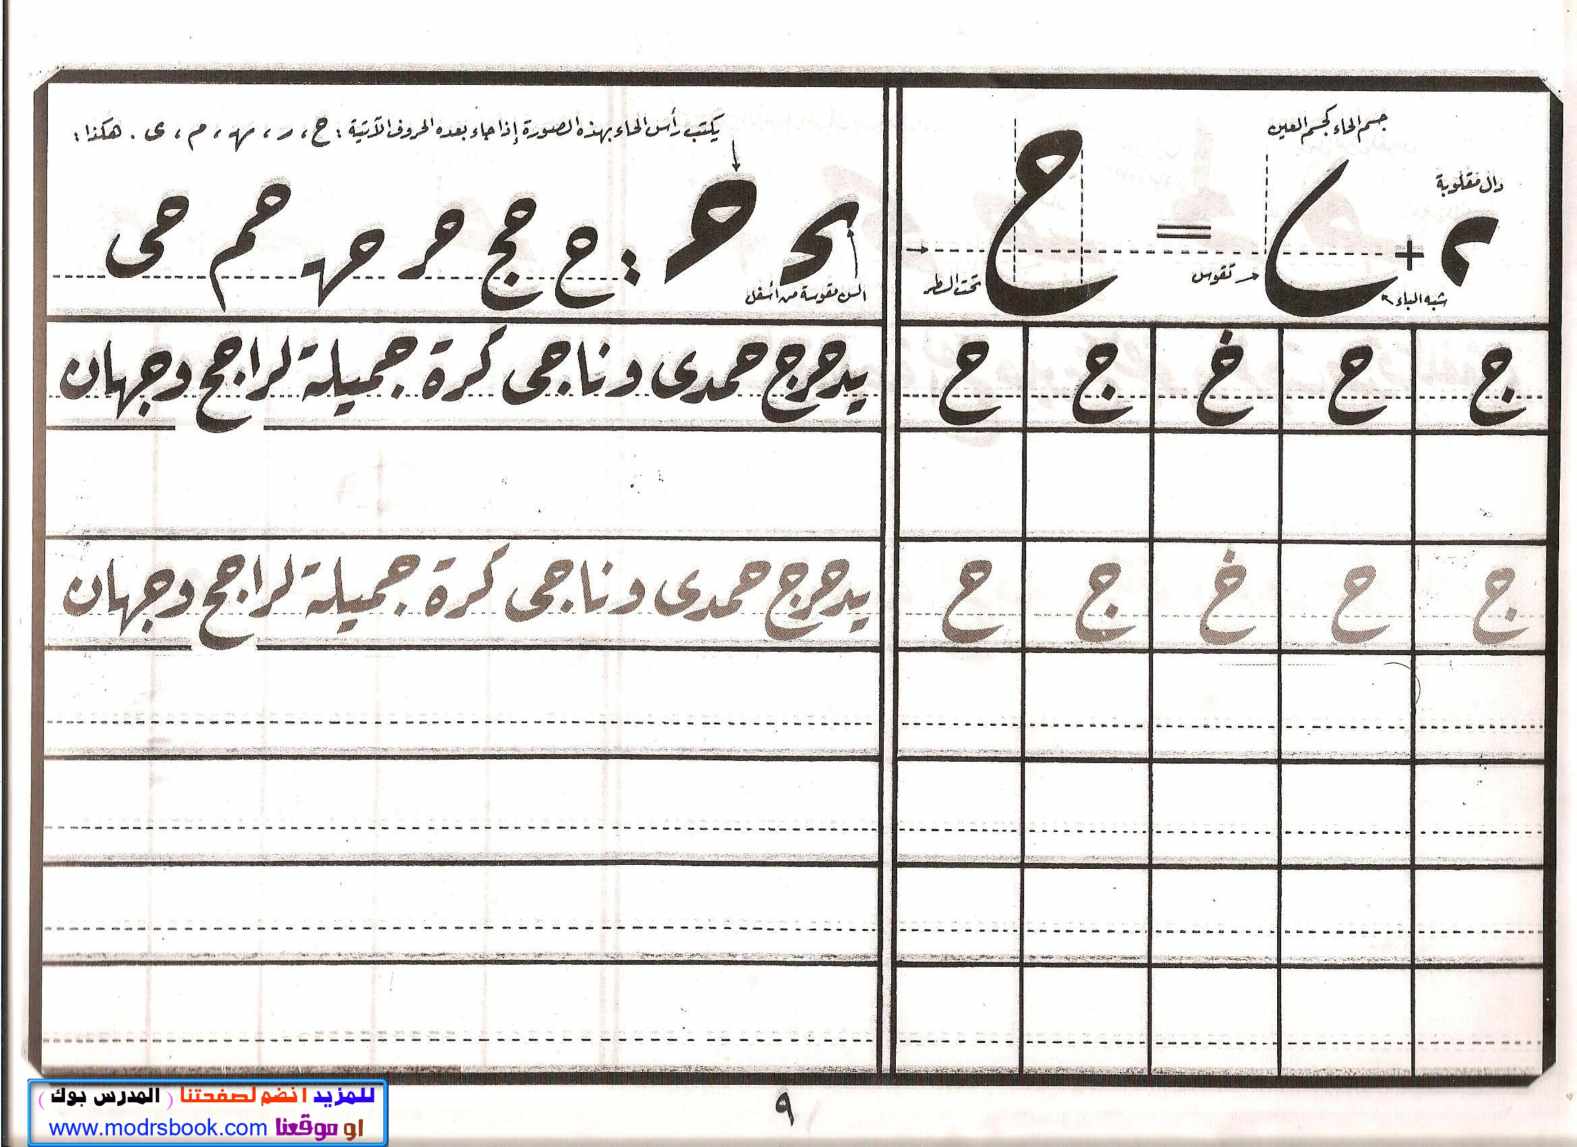 جسم الحاء كجسم العين
دال مقلوبة
ح
تقوس
شبه الباء
تحت السطر
يكتب رأس الحاء بهذه الصورة إذا جاء بعده الحروف الآتية : ح ، ر ، ه ، م ، ى . هكذا :
ح حج حر حه حم حى
السن مقوسة من أسفل
ج ح خ ج ح
يدحرج حمدى وناجى كرة جميلة لراجح وجهان
ج ح خ ج ح
يدحرج حمدى وناجى كرة جميلة لراجح وجهان
٩
للمزيد انضم لصفحتنا ( المدرس بوك )
او موقعنا www.modrsbook.com